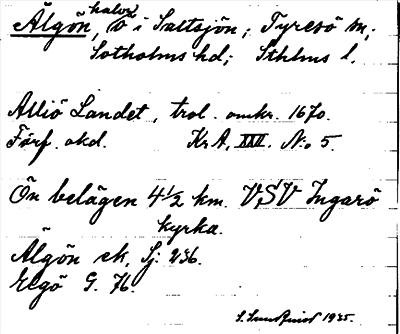 halvö
Älgön, ö i Saltsjön; Tyresö sn;
Sotholms hd; Sthlms l.
Alliö Landet, trol. omkr. 1670.
Förf. okd. Kr A, XXX. No 5.
Ön belägen 4½ km. VSV Ingarö
kyrka.
Älgön ek, Sj: 236.
Elgö G. 76.
S. Sundquist 1935.